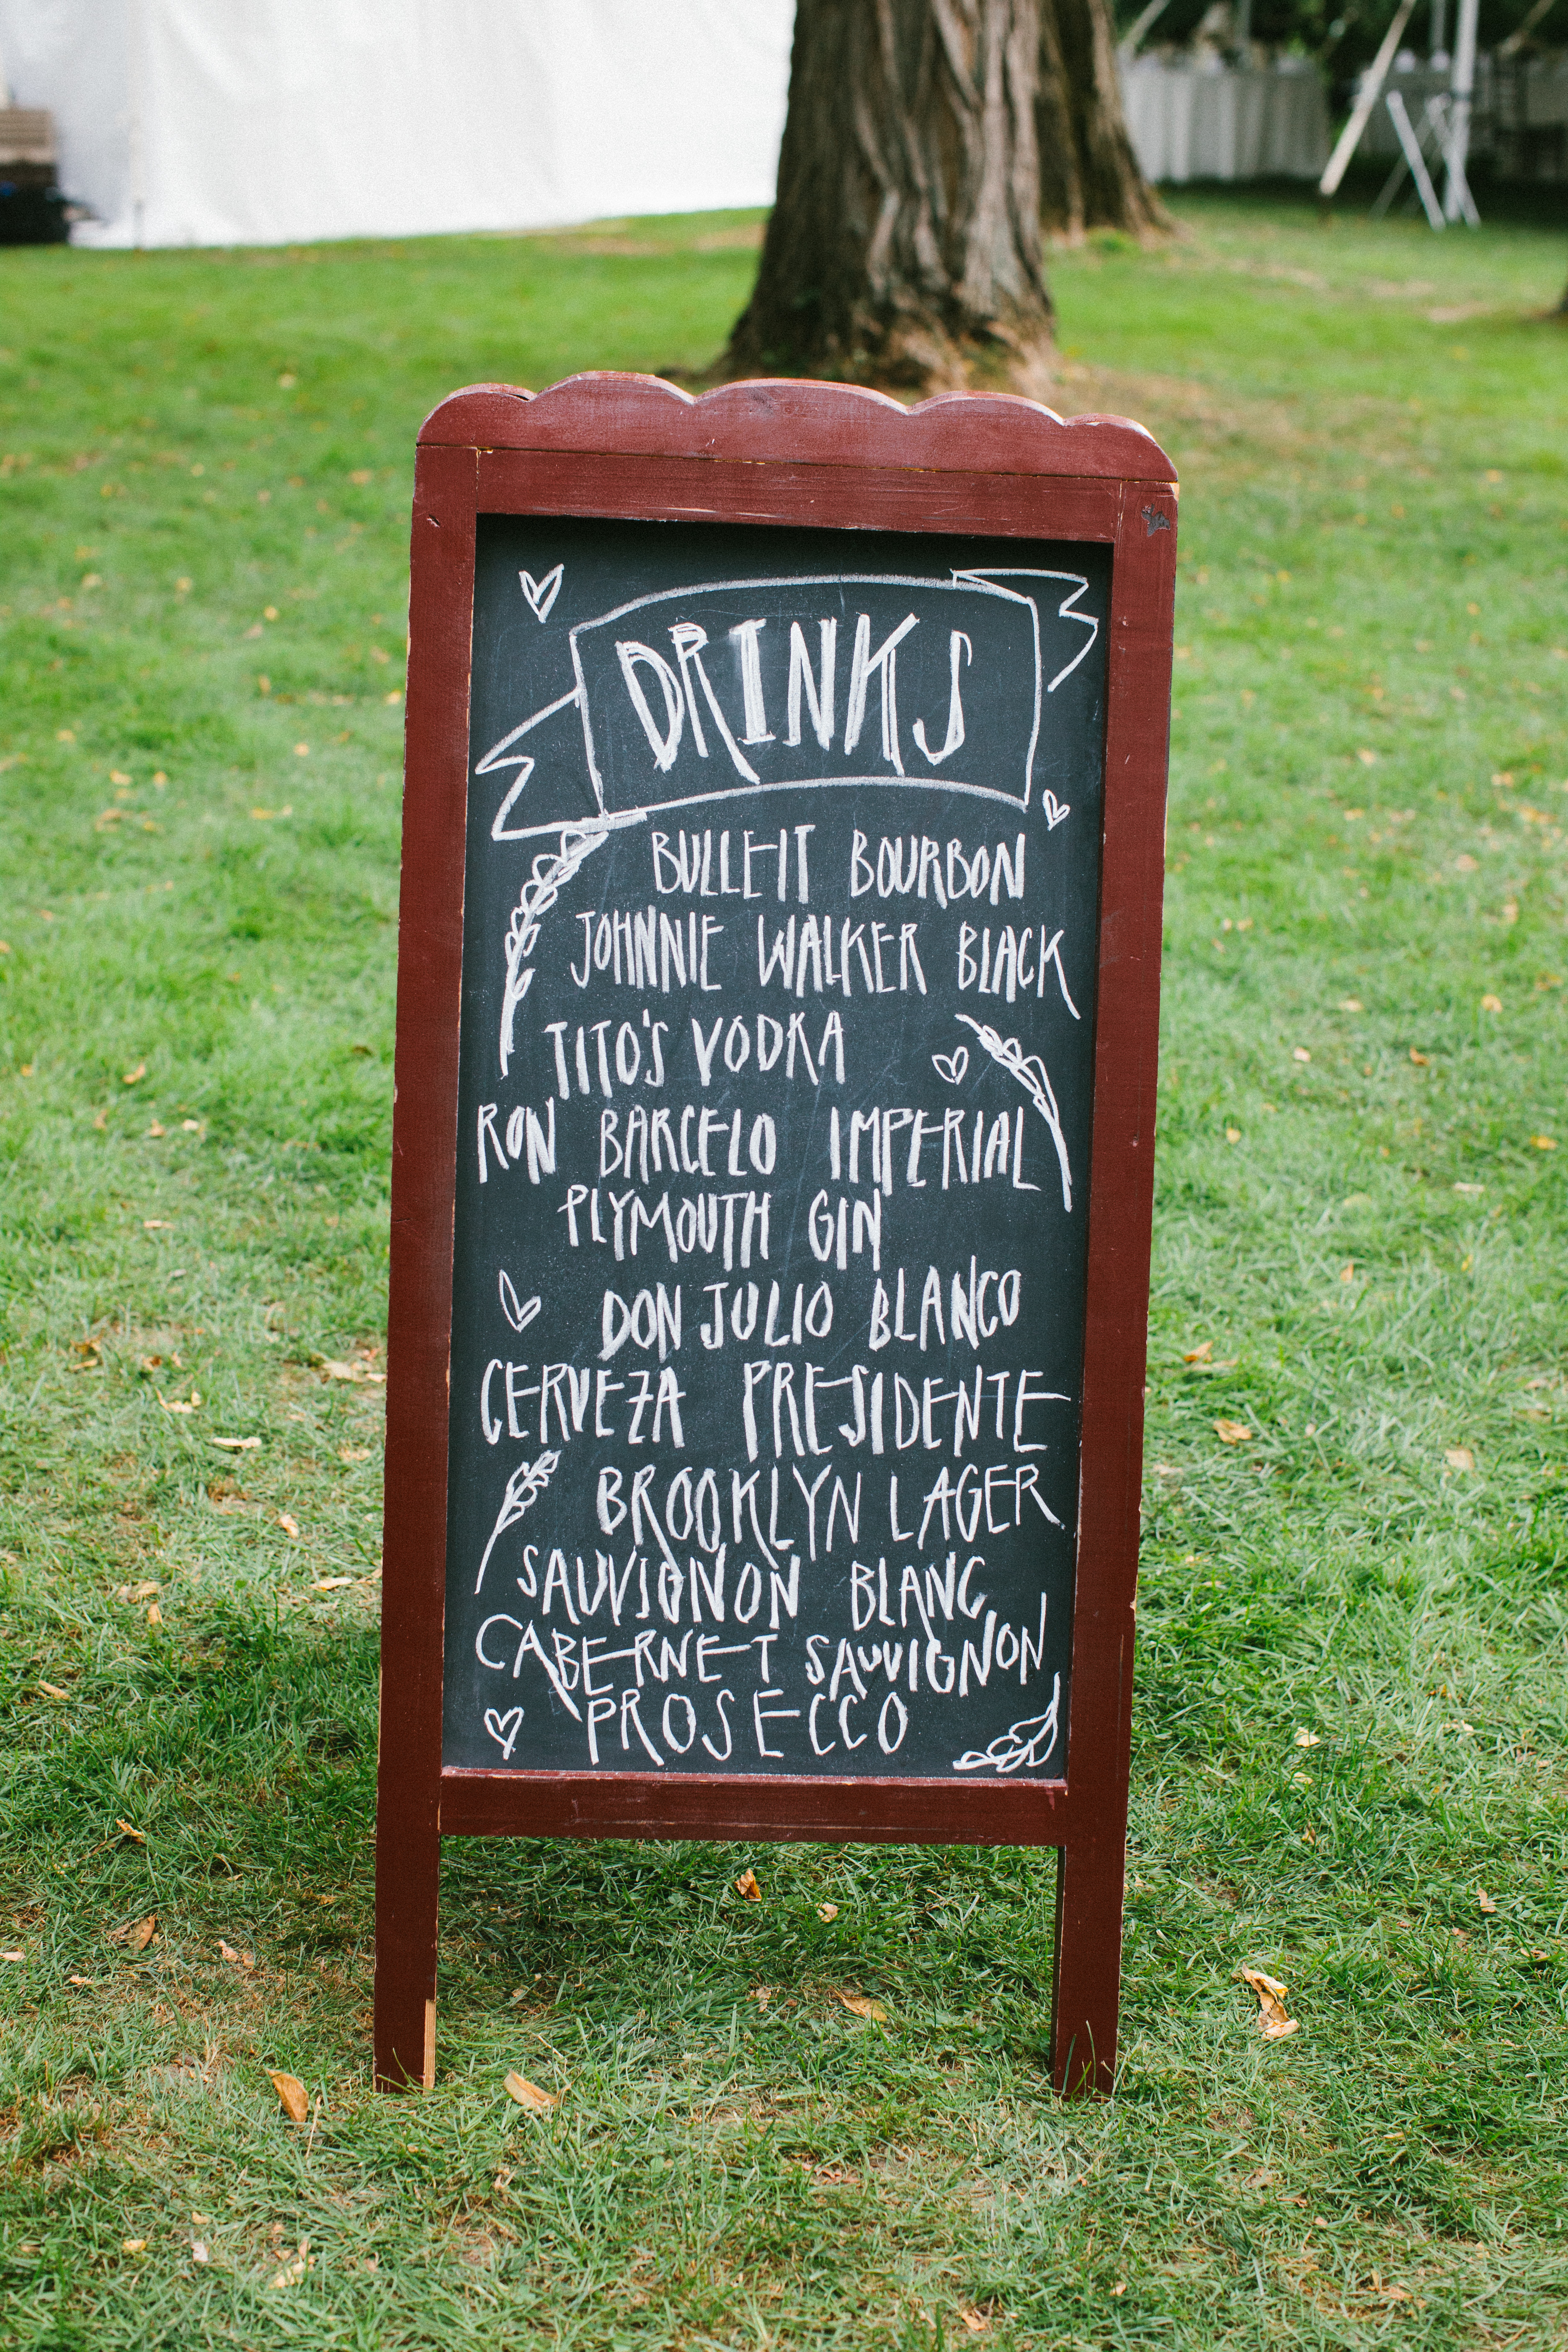 DRINKS
BULLEIT BOURBON
JOHNNIE WALKER BLACK
TITO'S VODKA
RON BARCELO IMPERIAL
PLYMOUTH GIN
DON JULIO BLANCO
CERVEZA PRESIDENTE
BROOKLYN LAGER
SAUVIGNON BLANC
CABERNET SAUVIGNON
PROSECCO